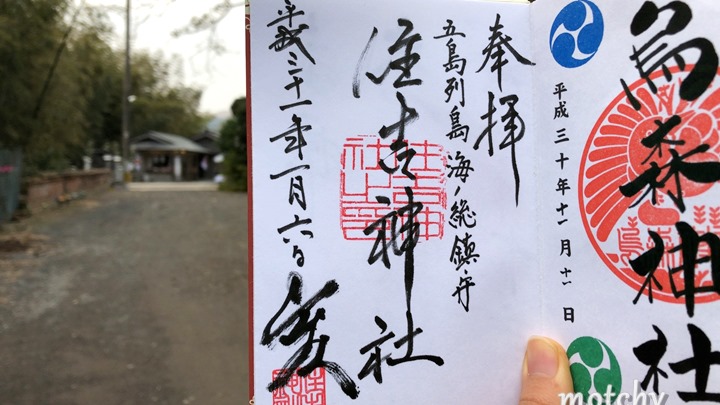 烏森神社
平成三十年十一月十一日
奉拝
五島列島海ノ総鎮守
住吉神社
平成三十一年一月六日
motchy